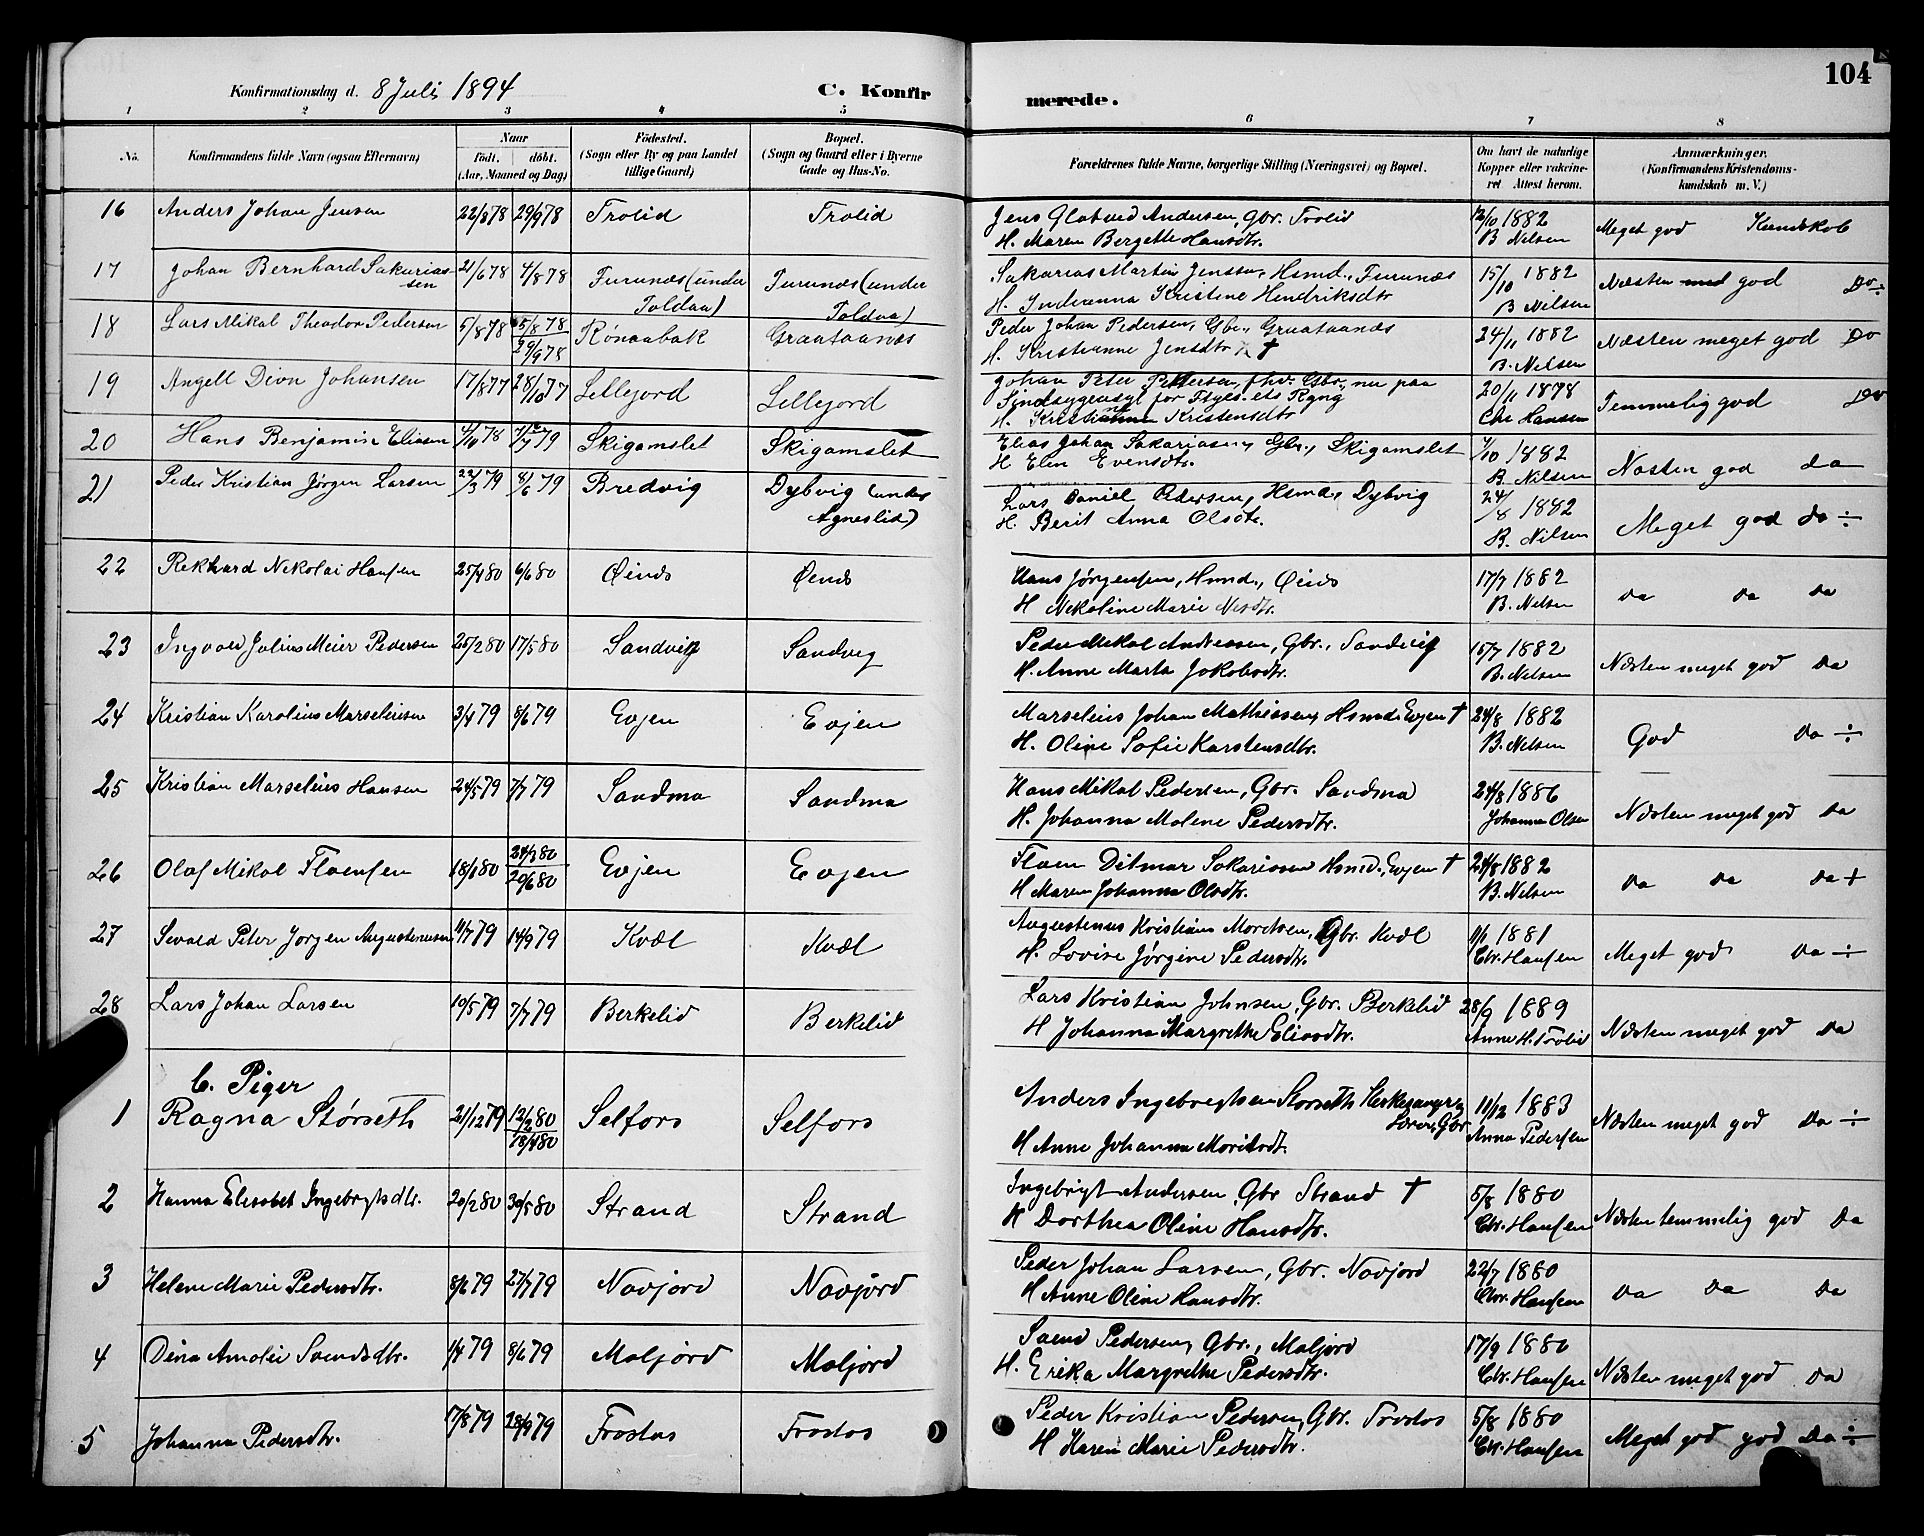 104
Konfirmationsdag d. 8 Juli 1894 C. Konfirmerede.
1 2 3 4 5 6 7 8
No. Konfirmandens fulde Navn (ogsaa Efternavn) Naar födt. döbt. (Aar, Maaned og Dag) Födested. (Sogn eller By og paa Landet tillige Gaard) Bopæl. (Sogn og Gaard eller i Byerne Gade og Hus-No. Forældrenes fulde Navne, borgerlige Stilling (Næringsvei) og Bopæl. Om havt de naturlige Kopper eller vakcineret Attest herom. Anmærkninger. (Konfirmandens Kristendomskundskab m. V.)
16 Anders Johan Jensen 22/8 78 29/9 78 Trolid Trolid Jens Glatved Andersen, Gbr. Trolid 12/10 1882 Meget god Kundskab
H. Maren Bergette Hansdtr. B Nilsen
17 Johan Bernhard Sakariassen 21/6 78 4/8 78 Furunæs (under Toldaa) Furunæs (under Toldaa) Sakarias Martin Jenssen, Hsmd., Furunæs 15/10 1882 Næsten god Do ÷
H. Inderanna Kristine Hendriksdtr B Nilsen
18 Lars Mikal Theodor Pedersen 5/8 78 5/8 78 29/9 78 Rønaabak Graataanes Peder Johan Pedersen, Gbr., Graataanes 24/11 1882 Næsten meget god Do
H. Kristianne Jensdtr † B. Nilsen
19 Angell Dion Johansen 17/8 77 28/10 77 Lillejord Lillejord Johan Peter Pettersen, fhv. Gbr., nu paa 20/11 1878 Temmelig god Do
Sindsygeasyl for Kristensdtr Chr Hansen
20 Hans Benjamin Eliasen 4/10 78 7/7 79 Skigamslet Skigamslet Elias Johan Sakariasen, Gbr., Skigamslet 7/10 1882 Næsten god da
H Elen Evensdtr. B. Nilsen
21 Peder Kristian Jørgen Larsen 22/3 79 8/6 79 Bredvig Dybvig (under Agneslid) Lars Daniel Pedersen, Hsmd., Dybvig 24/8 1882 Meget god do ÷
H. Berit Anna Olsdtr. B. Nilsen
22 Rekhard Nikolai Hansen 25/4 80 6/6 80 Øinds Øinds Hans Jørgensen, Hsmd., Øinds 17/7 1882 da da da
H Nikoline Marie Nisdtr. B. Nilsen
23 Ingvald Julius Meier Pedersen 25/2 80 17/5 80 Sandvig Sandvig Peder Mikal Andreasen, Gbr., Sandvig 15/7 1882 Næsten meget god da
H. Anne Marta Jakobsdtr. B. Nilsen
24 Kristian Karolius Marseliusen 3/4 79 8/6 79 Evjen Evjen Marselius Johan Mathiesen, Hsmd., Evjen † 24/8 1882 God da ÷
H. Oline Sofie Karstensdtr. B. Nilsen
25 Kristian Marselius Hansen 24/5 79 7/7 79 Sandmo Sandmo Hans Mikal Pedersen, Gbr. Sandmo 24/8 1886 Næsten meget god da
H. Johanna Malene Pedersdtr. Johanna Olsen
26 Olaf Mikal Floensen 18/1 80 24/3 80 20/6 80 Evjen Evjen Floen Ditmar Sakariasen Hsmd., Evjen † 24/8 1882 da da da +
H Maren Johanna Olsdtr. B. Nilsen
27 Sevald Peter Jørgen Augustinusen 11/7 79 14/9 79 Kvæl Kvæl Augustinus Kristians Mortsen, Gbr. Kvæl 11/1 1881 Meget god da ÷
H. Lovise Jørgine Pedersdtr. Chr. Hansen
28 Lars Johan Larsen 10/5 79 7/7 79 Berkelid Berkelid Lars Kristian Johnsen, Gbr. Berkelid 28/9 1889 Næsten meget god da
H Johanna Margrethe Eliasdtr. Anne H. Trolid
b. Piger
1 Ragna Størseth 21/12 79 12/2 80 18/4 80 Selfors Selfors Anders Ingebregtsen Storseth Kirkesanger og Gbr. 11/12 1883 Næsten meget god da ÷
H Anne Johanna Moritsdt. Anna Pedersen
2 Hanna Elisabet Ingebrigtsdtr. 20/2 80 30/5 80 Strand Strand Ingebrigt Andersen, Gbr Strand † 5/8 1880 Næsten temmelig god da
H Dorthea Oline Hansdtr. Chr. Hansen
3 Helene Marie Pedersdtr. 8/6 79 27/7 79 Navjord Navjord Peder Johan Larsen, Gbr. Navjord 22/7 1880 da da da
H Anne Oline Hansdtr. Chr. Hansen
4 Dina Amalie Svendsdtr. 1/4 79 8/6 79 Maljord Maljord Svend Pedersen, Gbr., Maljord 17/9 1880 Næsten meget god da
H. Erika Margrethe Pedersdtr. Chr. Hansen
5 Johanna Pedersdtr. 17/8 79 28/9 79 Frostos Frostos Peder Kristian Pedersen, Gbr. Frostos 5/8 1880 Meget god god da ÷
H Karen Marie Pedersdtr. Chr. Hansen